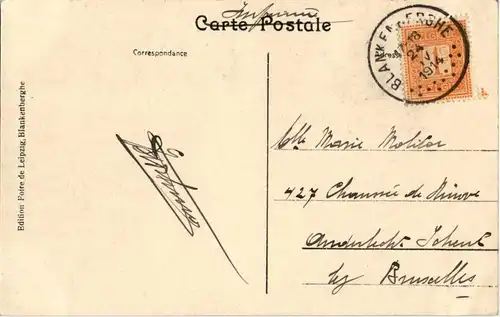 Imprimé
Carte Postale
Correspondance
BLANKENBERGHE
24
IV
1914
Mlle Marie Molitor
427 Chaussée de Ninove
Anderlecht Scheut
lez Bruxelles
Edition Foire de Leipzig, Blankenberghe